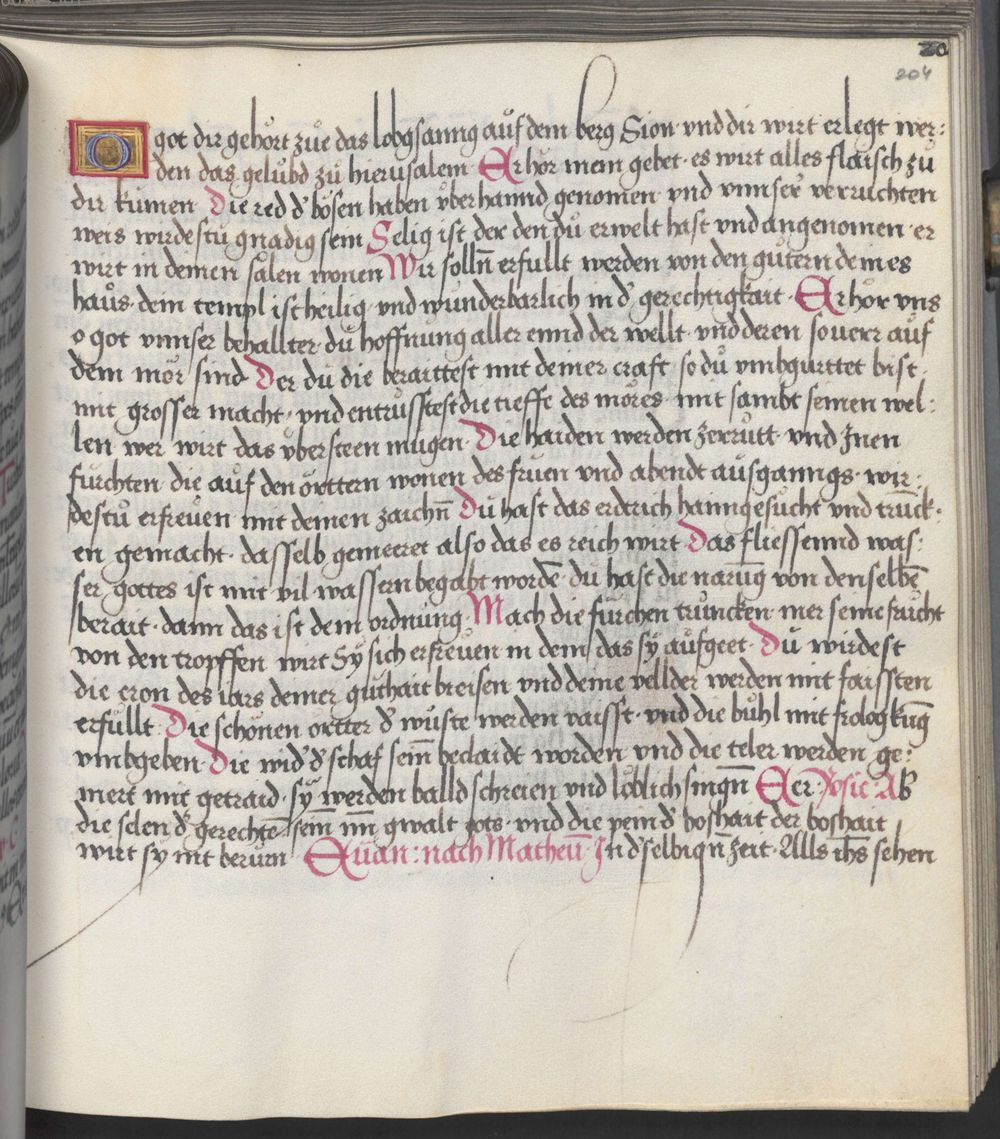 20
204
O got dir gehort zue das lobgsanng auf dem berg Sion· vnd dir wirt erlegt wer:
den das gelubd zu hierusalem· Erhör mein gebet· es wirt alles flaisch zu
dir kumen· Die red d' bösen haben vberhannd genomen· vnd vnnser verruchten
weis wirdestu gnadig sein Selig ist der den du erwelt hast vnd angenomen· er
wirt in deinen salen wonen Wir solln̄ erfullt werden von den gutern deines
haus· dein templ ist heilig· vnd wunderbarlich in d' gerechtigkait· Erhör vns
o got vnnser behallter· du hoffnung aller ennd der wellt· vnd deren so uerr auf
dem mör sind· Der du die beraittest mit deiner craft· so du vmbgurttet bist·
mit grosser macht· vnd entrusstest die tieffe des möres· mit sambt seinen wel:
len wer wirt das vbersteen mugen· Die haiden werden zerrutt· vnd Jnen
furchten· die auf den örttern wonen des fruen vnd abendt ausganngs· wir:
destu erfreuen mit deinen zaichn̄ Du hast das erdtrich haimgesucht vnd trück·
en gemacht· dasselb gemeeret also das es reich wirt· Das fliessennd was:
ser gottes ist mit vil wassern begabt wordē· du hast die narūg von denselbē
berait· dann das ist dein ordnung· Mach die furchen truncken· mer seine frucht
von den tropffen wirt Sy sich erfreuen in dem das sy aufgeet· Du wirdest
die cron des iars deiner guthait breisen vnd deine vellder werden mit faissten
erfullt· Die schönen örtter d' wuste werden vaisst· vnd die buhl mit frologkūg
vmbgeben· Die wid' d' schaf sein̄ beclaidt worden· vnd die teler werden ge:
mert mit getraid· sy werden balld schreien vnd loblich singn̄ Eer· Psic· Ab
die selen d' gerechtē sein inn̄ gwalt gots· vnd die pein d' boshait der boshait
wirt sy nit berurn· Ewan: nach Matheū Jn d' selbign̄ zeit· Alls ihs sehen